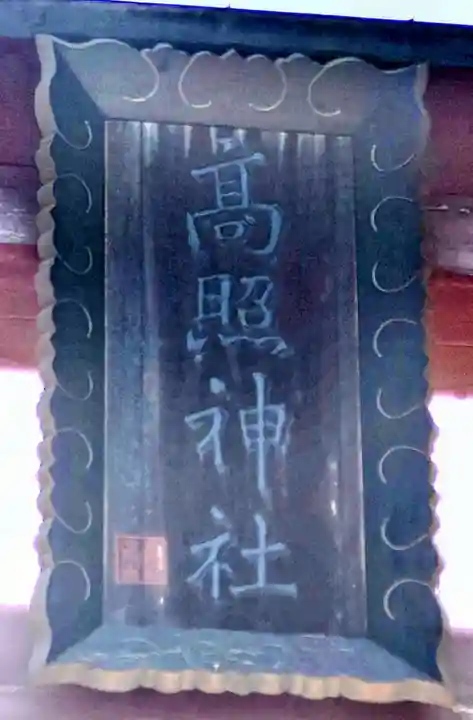 高照神社